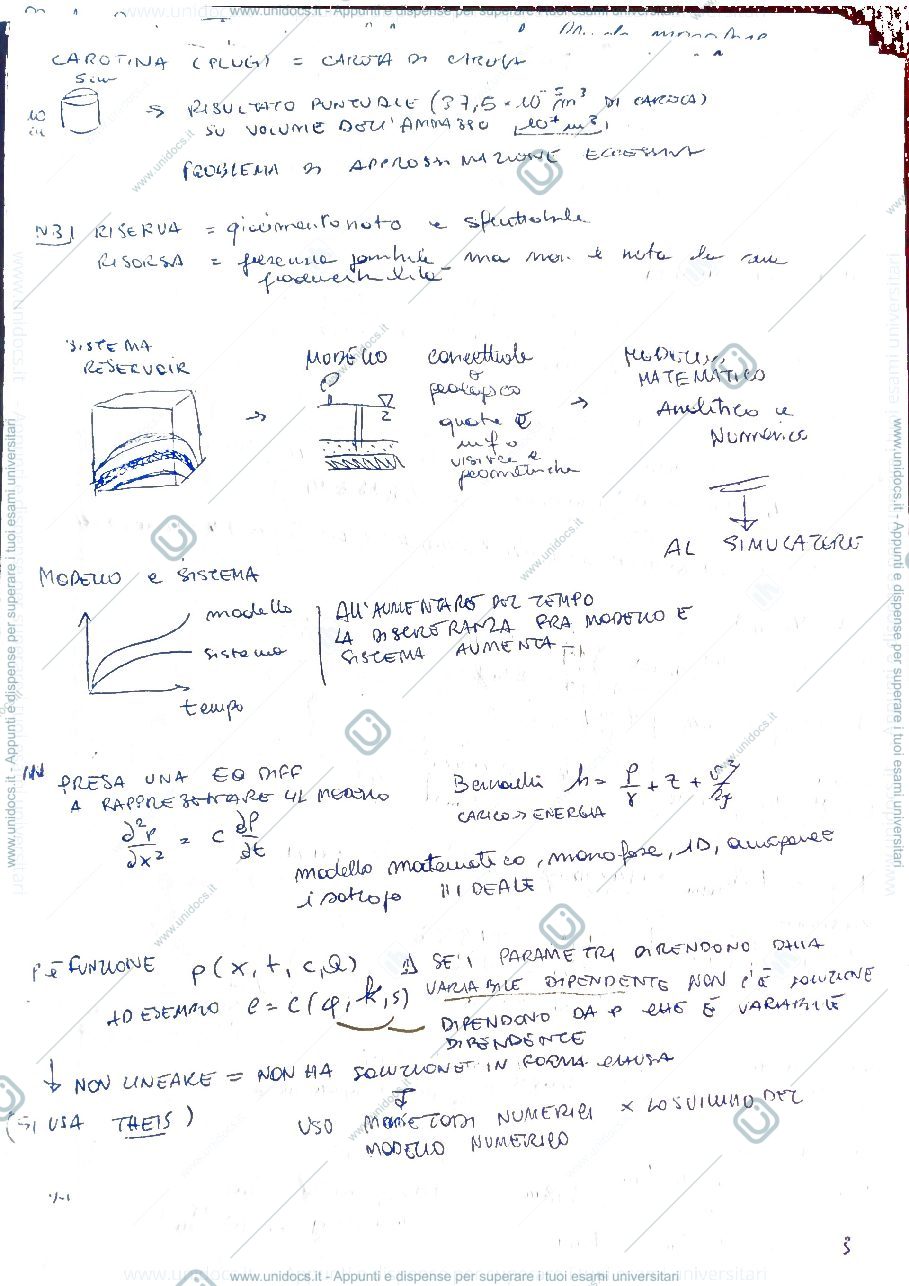 www.unidocs.it - Appunti e dispense per superare i tuoi esami universitari
CAROTINA (PLUG) = CAROTA DI CAROTA
5 cm
10
RISULTATO PUNTUALE (37,5 · 10⁻⁵ m³ DI CAROTA)
SU VOLUME DELL'AMMASSO
PROBLEMA DI APPROSSIMAZIONE ECCESSIVA
RISERVA = giacimento noto e sfruttabile
RISORSA = presenza
ma non è nota
SISTEMA
RESERVOIR
MODELLO concettuale
geologico
quote
info
visive e
geometriche
MATEMATICO
Analitico e
Numerico
AL SIMULATORE
MODELLO e SISTEMA
modello
sistema
tempo
ALL'AUMENTARE DEL TEMPO
LA DISCREPANZA FRA MODELLO E
SISTEMA AUMENTA
PRESA UNA EQ DIFF
A RAPPRESENTARE IL MODELLO
∂²P/∂x² = c ∂P/∂t
Bernoulli h = P/γ + z + v²/2g
CARICO → ENERGIA
modello matematico, monofase, 1D, omogeneo
isotropo IDEALE
P È FUNZIONE p(x, t, c, Q)
SE I PARAMETRI DIPENDONO DALLA
VARIABILE DIPENDENTE NON C'È SOLUZIONE
AD ESEMPIO c = c(φ, k, s)
DIPENDONO DA P CHE È VARIABILE
DIPENDENTE
↓ NON LINEARE = NON HA SOLUZIONE IN FORMA CHIUSA
(SI USA THEIS)
USO METODI NUMERICI x LO SVILUPPO DEL
MODELLO NUMERICO
3
www.unidocs.it - Appunti e dispense per superare i tuoi esami universitari